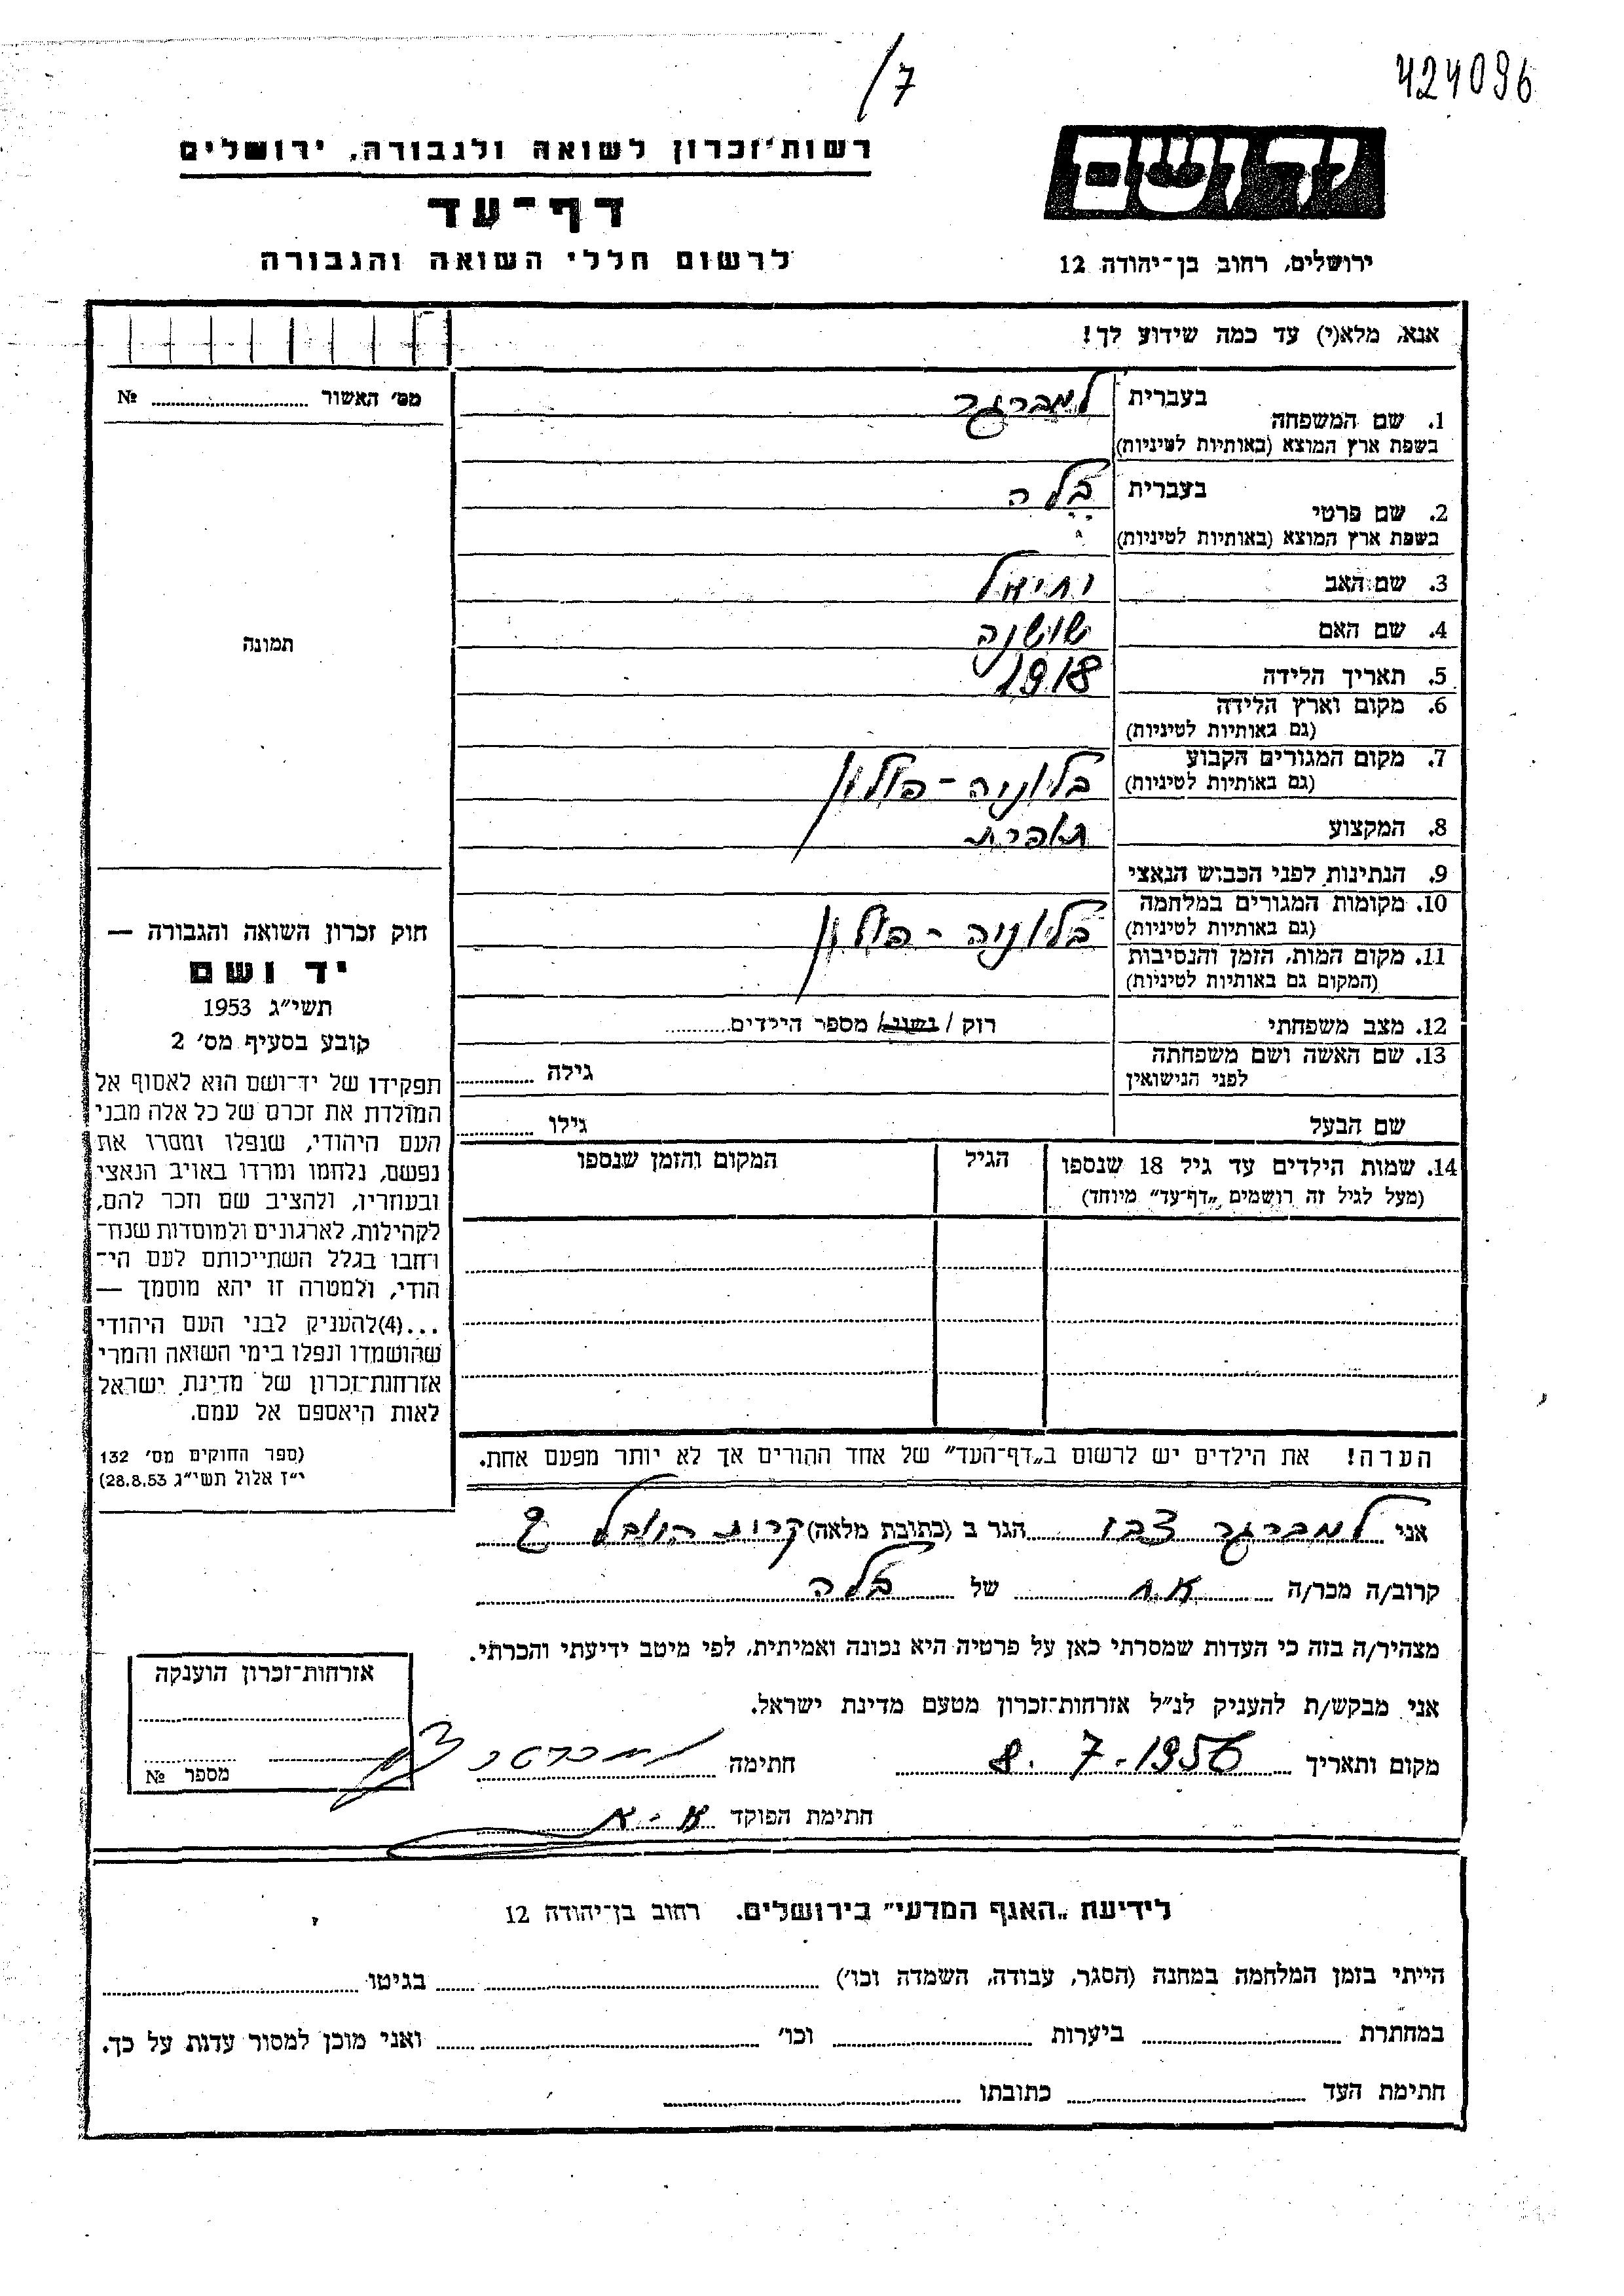 /7
424096
יד ושם
רשות־זכרון לשואה ולגבורה, ירושלים
דף־עד
לרשום חללי השואה והגבורה
ירושלים, רחוב בן־יהודה 12
אנא, מלא(י) עד כמה שידוע לך!
מס׳ האשור № 
1. שם המשפחה
בעברית למברגר
בשפת ארץ המוצא (באותיות לטיניות)
2. שם פרטי
בעברית בלה
בשפת ארץ המוצא (באותיות לטיניות)
3. שם האב יחיאל
4. שם האם שושנה
5. תאריך הלידה 1918
6. מקום וארץ הלידה
(גם באותיות לטיניות)
7. מקום המגורים הקבוע
(גם באותיות לטיניות)
פולין
8. המקצוע תופרת
9. הנתינות לפני הכבוש הנאצי
10. מקומות המגורים במלחמה
(גם באותיות לטיניות)
פולין
11. מקום המות, הזמן והנסיבות
(המקום גם באותיות לטיניות)
12. מצב משפחתי רוק / נשוי / מספר הילדים
13. שם האשה ושם משפחתה
לפני הנישואין
גילה
שם הבעל גילו
14. שמות הילדים עד גיל 18 שנספו
(מעל לגיל זה רושמים „דף־עד״ מיוחד)
הגיל
המקום והזמן שנספו
הערה! את הילדים יש לרשום ב„דף־העד״ של אחד ההורים אך לא יותר מפעם אחת.
תמונה
חוק זכרון השואה והגבורה —
יד ושם
תשי״ג 1953
קובע בסעיף מס׳ 2
תפקידו של יד־ושם הוא לאסוף אל
המולדת את זכרם של כל אלה מבני
העם היהודי, שנפלו ומסרו את
נפשם, נלחמו ומרדו באויב הנאצי
ובעוזריו, ולהציב שם וזכר להם,
לקהילות, לארגונים ולמוסדות שנח־
רחבו בגלל השתייכותם לעם הי־
הודי, ולמטרה זו יהא מוסמך —
...(4)להעניק לבני העם היהודי
שהושמדו ונפלו בימי השואה והמרי
אזרחות־זכרון של מדינת ישראל
לאות היאספם אל עמם.
(ספר החוקים מס׳ 132
י״ז אלול תשי״ג 28.8.53)
אני למברגר הגר ב (כתובת מלאה) קרית היובל
קרוב/ה מכר/ה אח של בלה
מצהיר/ה בזה כי העדות שמסרתי כאן על פרטיה היא נכונה ואמיתית, לפי מיטב ידיעתי והכרתי.
אני מבקש/ת להעניק לנ״ל אזרחות־זכרון מטעם מדינת ישראל.
מקום ותאריך 8.7.1956 חתימה
חתימת הפוקד א-א
אזרחות־זכרון הוענקה
מספר №
לידיעת „האגף המדעי״ בירושלים. רחוב בן־יהודה 12
הייתי בזמן המלחמה במחנה (הסגר, עבודה, השמדה וכו׳) בגיטו
במחתרת ביערות וכו׳ ואני מוכן למסור עדות על כך.
חתימת העד כתובתו